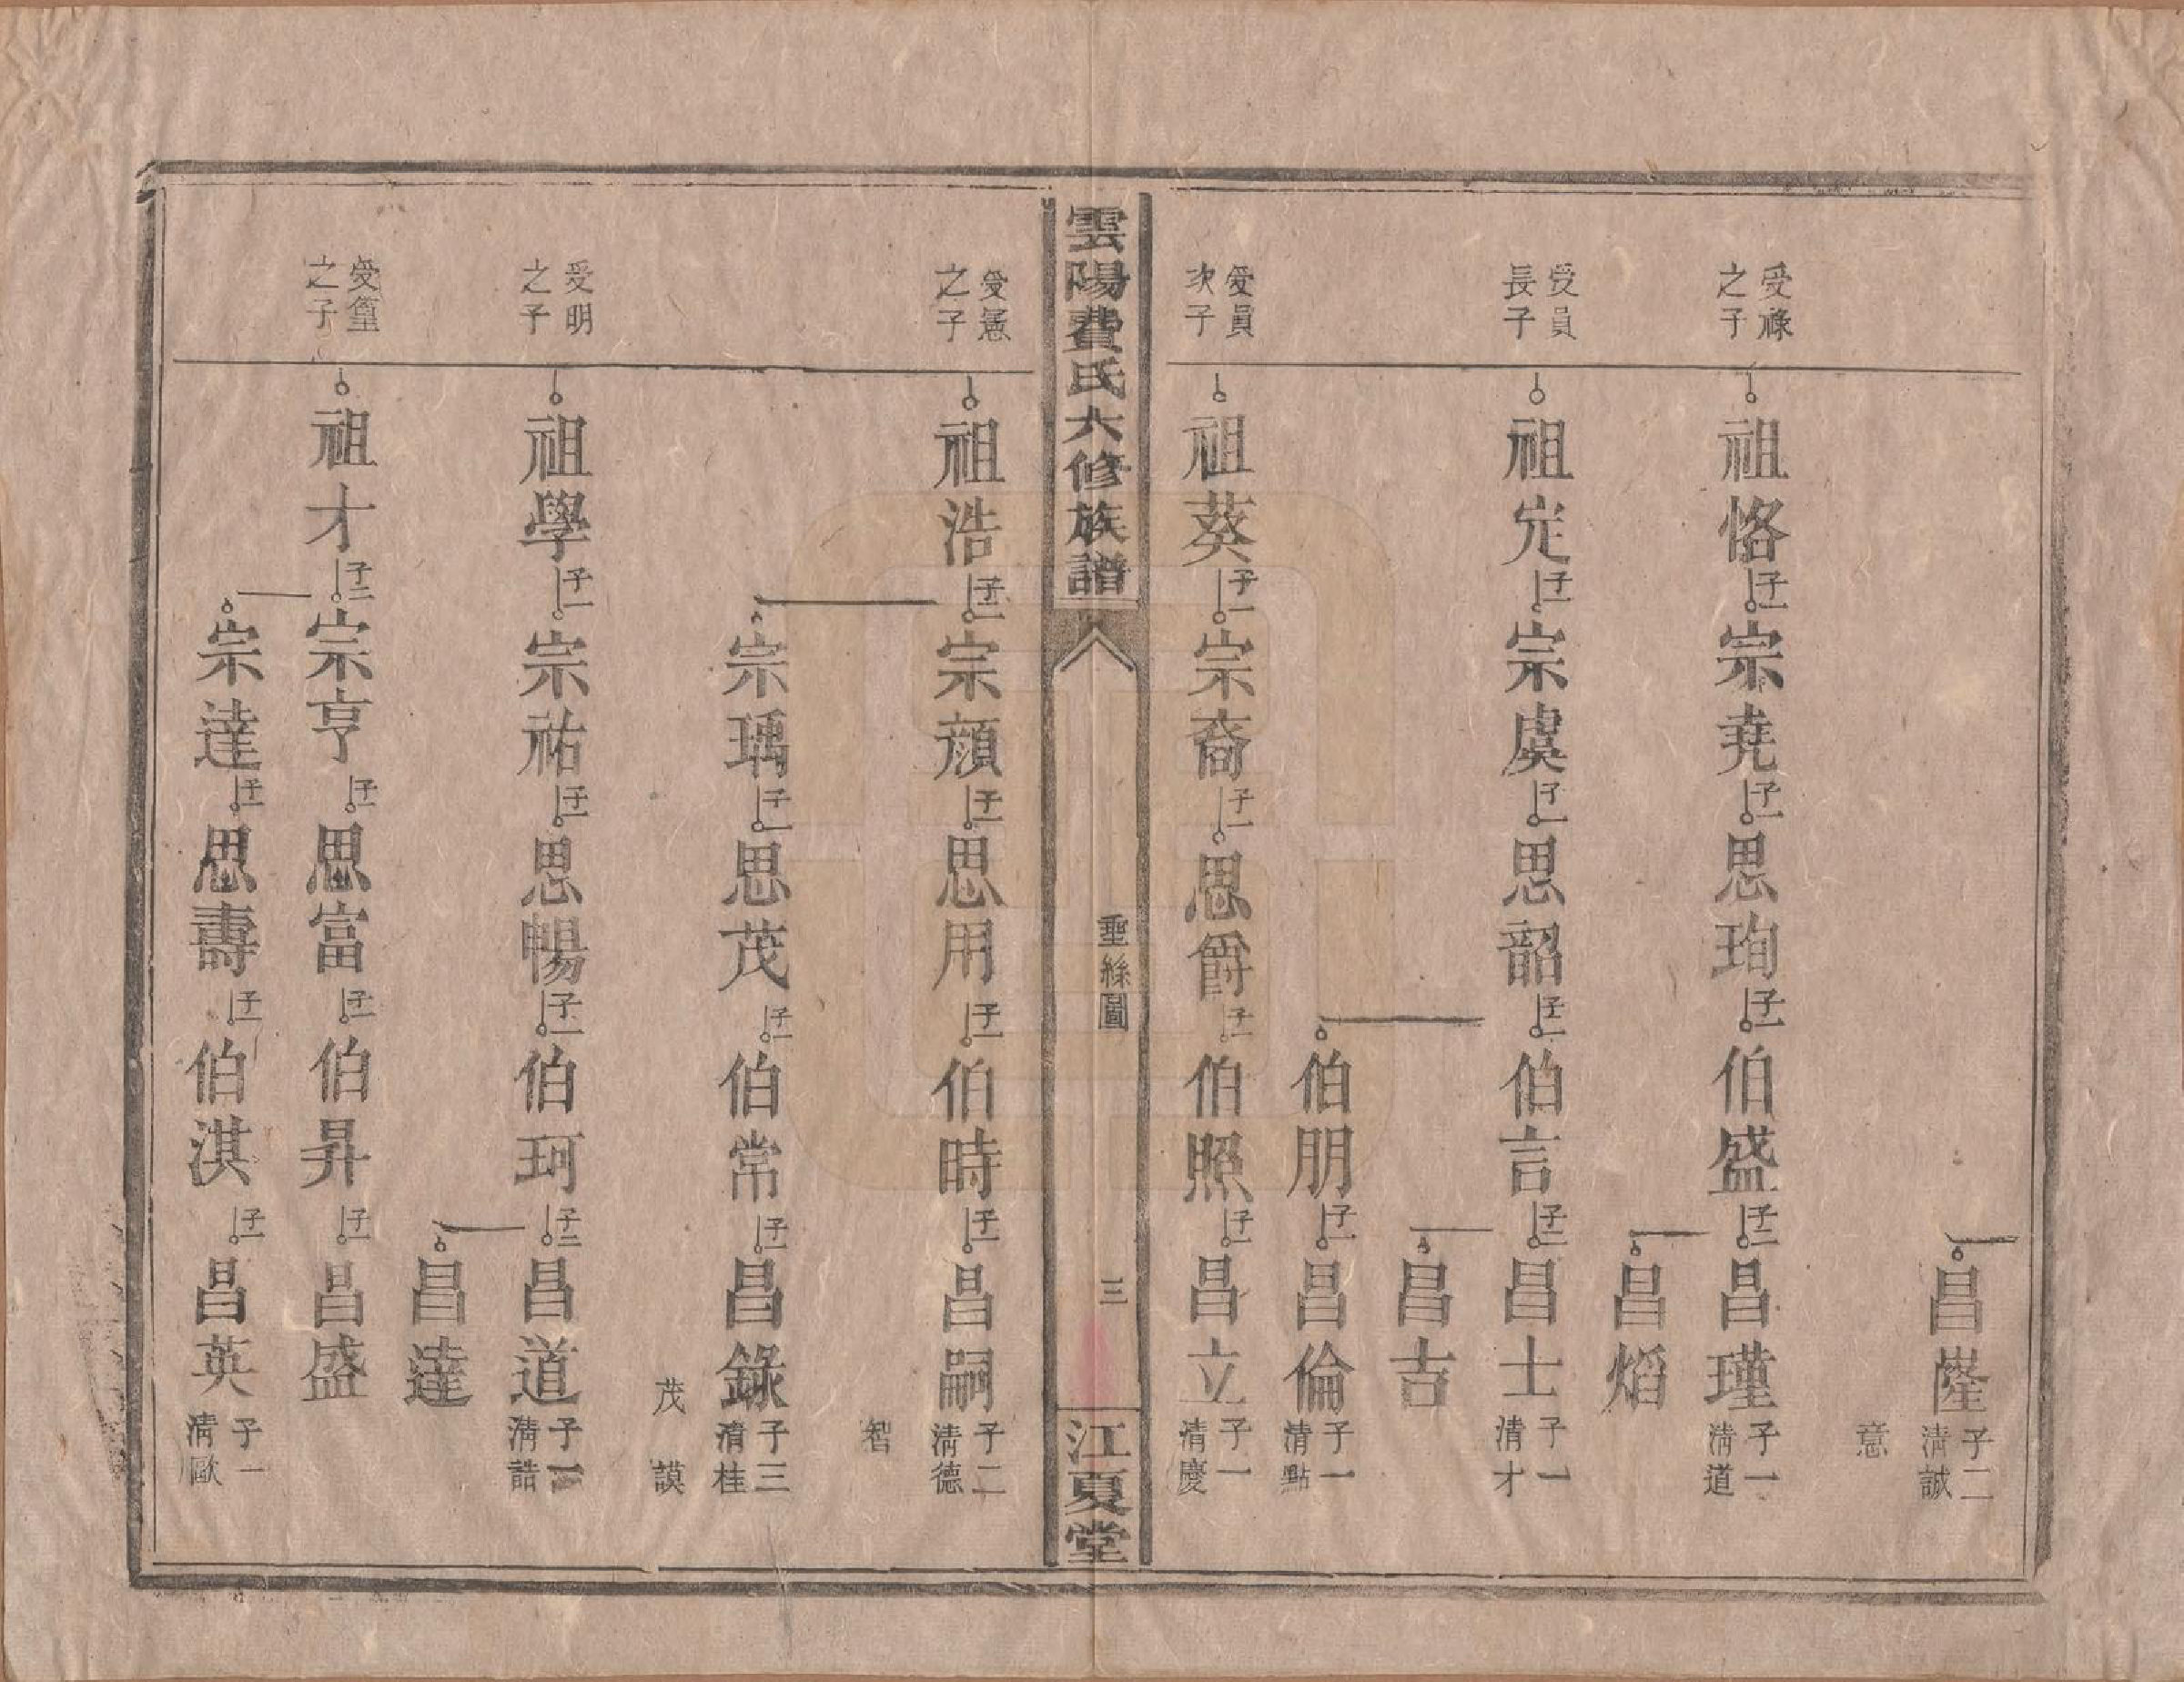 昌嶐 子二 清誠
意
受祿之子
祖恪 子一 宗堯 子一 思珣 子一 伯盛 子二 昌瑾 子一 清道
昌熖
受員長子
祖定 子一 宗虞 子一 思韶 子二 伯言 子二 昌士 子一 清才
昌吉
伯朋 子一 昌倫 子一 清點
受員次子
祖葵 子一 宗裔 子一 思爵 子一 伯照 子一 昌立 子一 清慶
雲陽費氏六修族譜
垂絲圖
三
江夏堂
受憲之子
祖浩 子二 宗顔 子一 思用 子一 伯時 子一 昌嗣 子二 清德
智
宗瑀 子一 思茂 子一 伯常 子一 昌錄 子三 清桂
茂 謨
受明之子
祖學 子一 宗祐 子一 思暢 子一 伯珂 子二 昌道 子一 清誥
昌達
受篁之子
祖才 子二 宗亨 子一 思富 子一 伯昇 子一 昌盛
宗達 子一 思壽 子一 伯淇 子一 昌英 子一 清歐